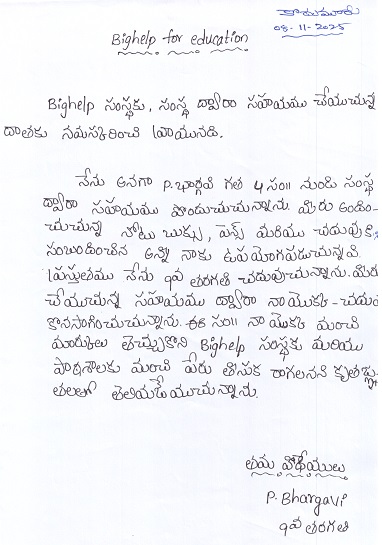 కొడుమూరు
08-11-2025
Bighelp for education
Bighelp సంస్థకు, సంస్థ ద్వారా సహాయము చేయుచున్న
దాతకు నమస్కరించి వ్రాయునది.
నేను అనగా P. భార్గవి గత 4 సం॥ నుండి సంస్థ
ద్వారా సహాయము పొందుచున్నాను. మీరు అందిం-
చుచున్న నోటు బుక్స్, పెన్స్ మరియు చదువుకి
సంబంధించిన అన్నీ నాకు ఉపయోగపడుచున్నవి.
ప్రస్తుతము నేను 9వ తరగతి చదువుచున్నాను. మీరు
చేయుచున్న సహాయము ద్వారా నా యొక్క చదువు
కొనసాగించుచున్నాను. ఈ సం॥ నా యొక్క మంచి
మార్కులు తెచ్చుకొని Bighelp సంస్థకు మరియు
పాఠశాలకు మంచి పేరు తీసుక రాగలనని కృతజ్ఞ-
తలతో తెలియజేయుచున్నాను.
తమ విధేయులు
P. Bhargavi
9వ తరగతి